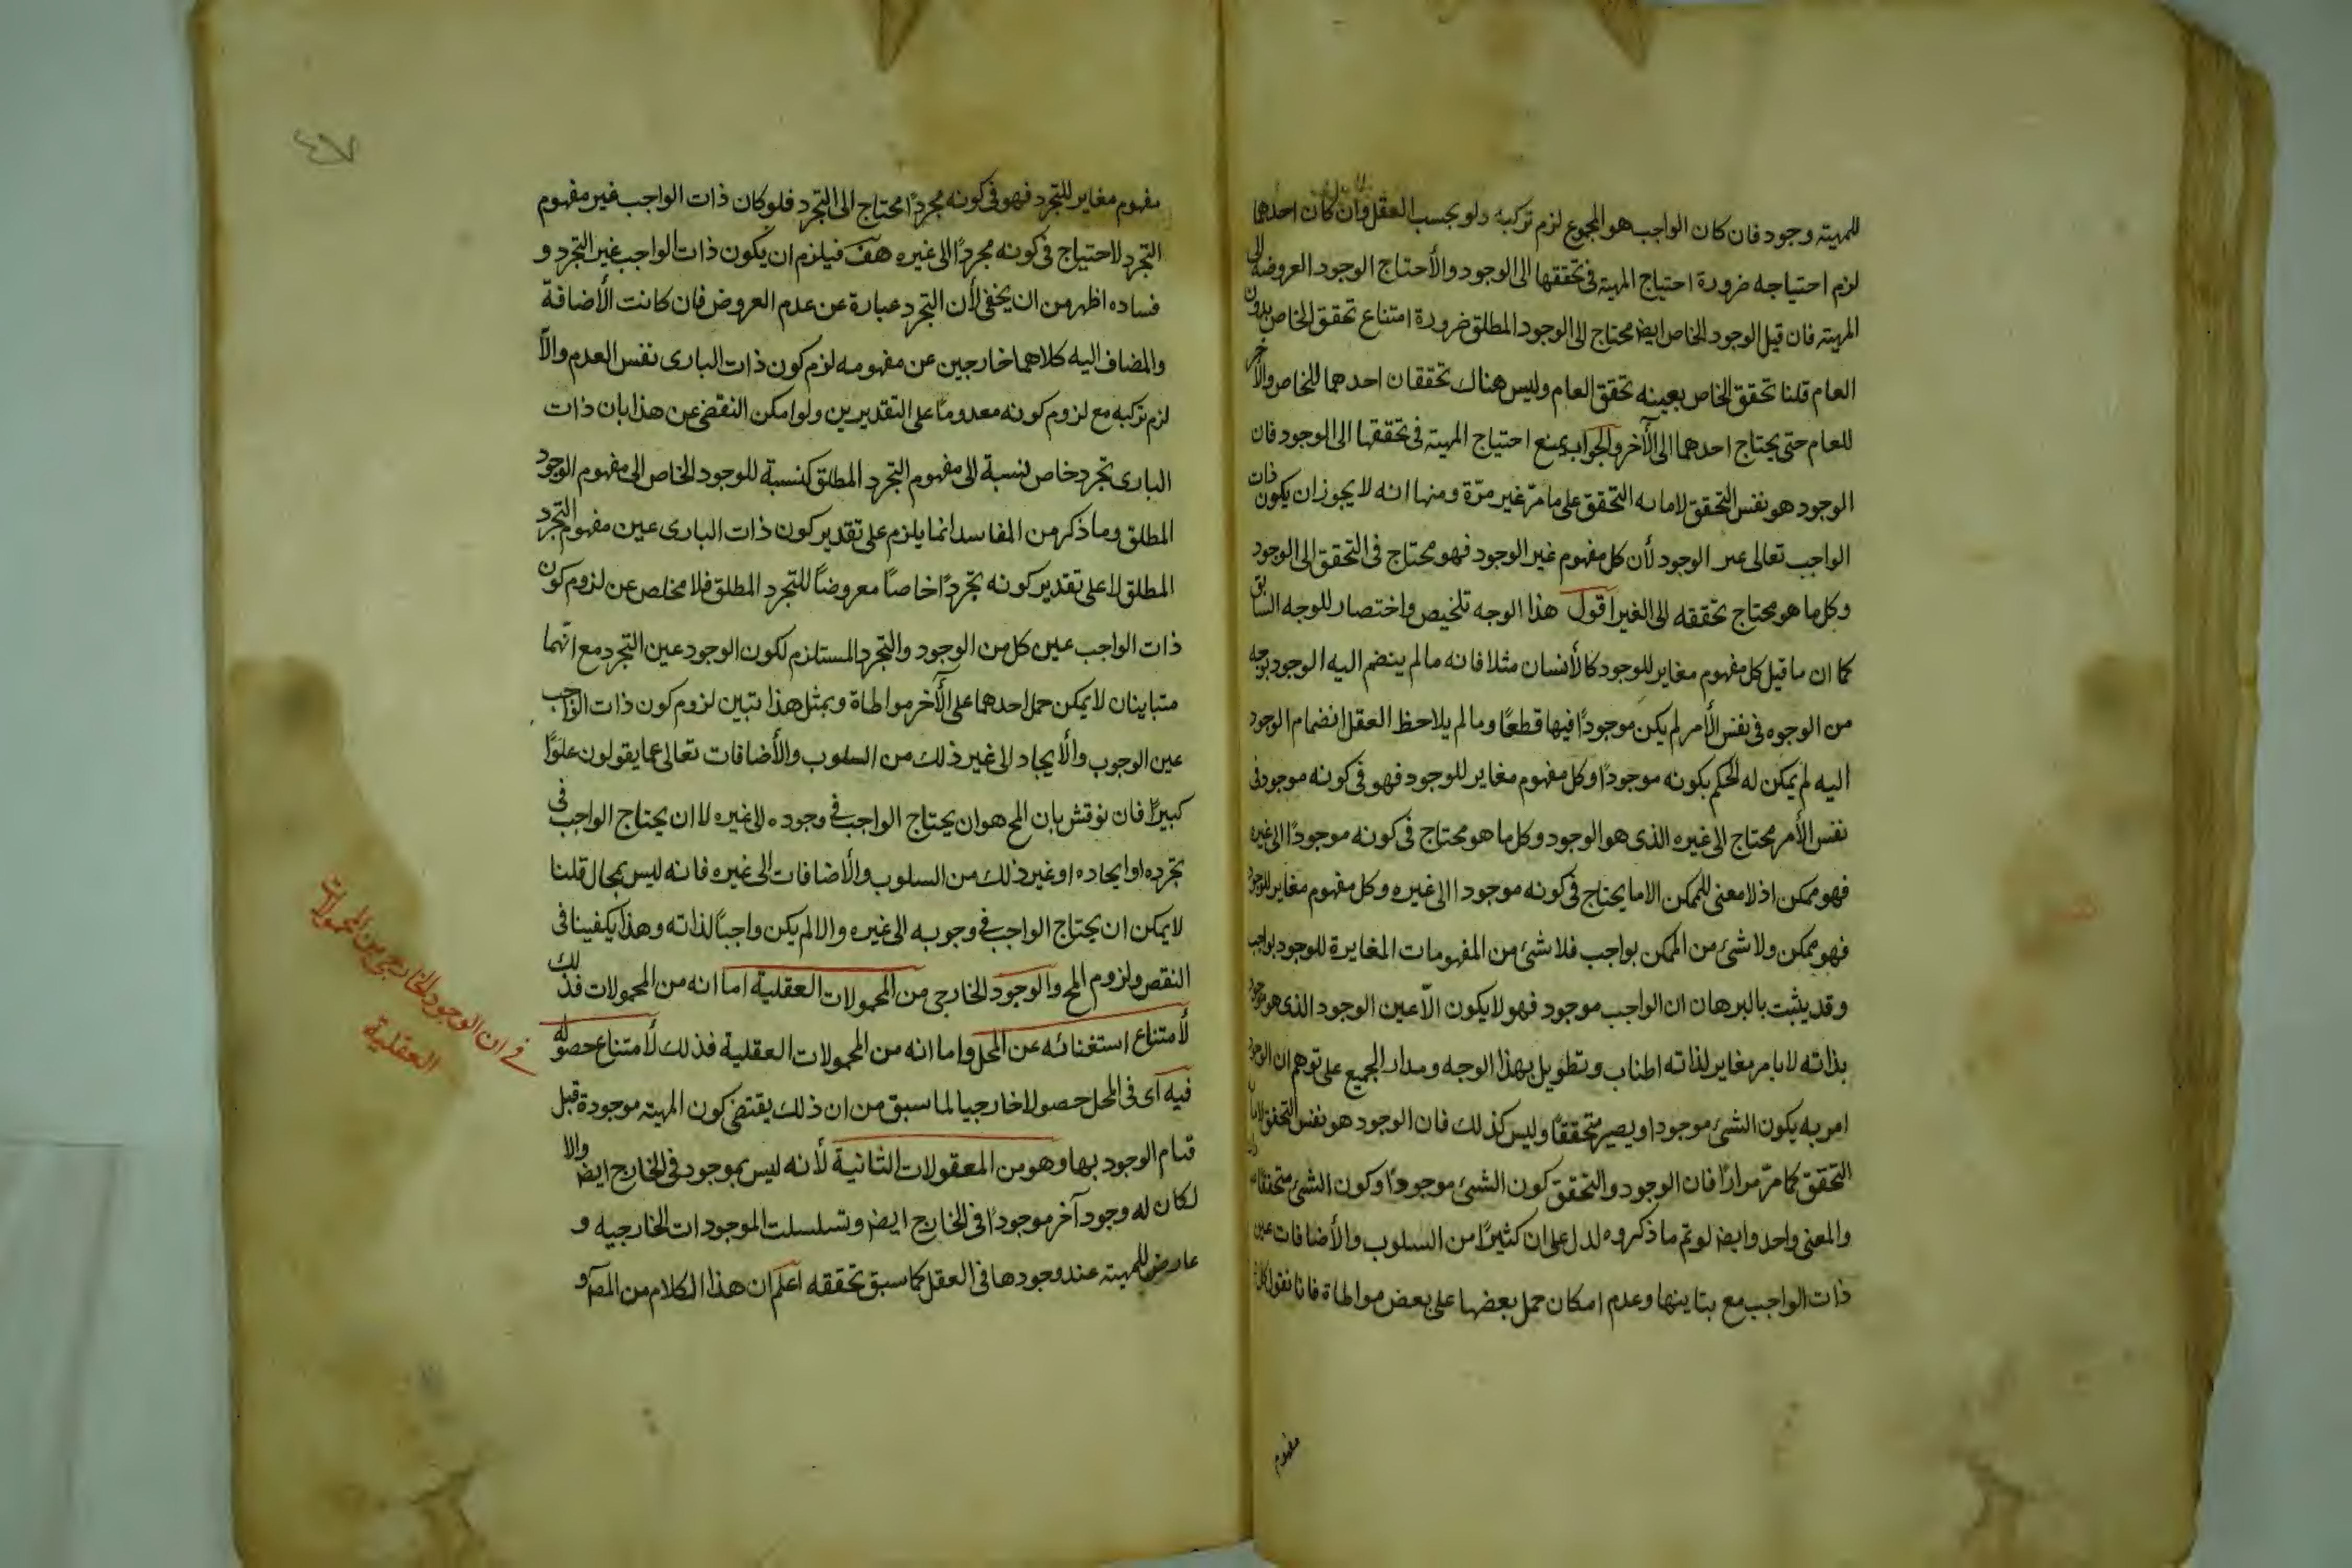 للمهيته وجود فان كان الواجب هو المجموع لزم تركبه ولو بحسب العقل وان كان احدهما
لزم احتياجه ضرورة احتياج المهية فى تحققها الى الوجود والأحتاج الوجود العروضه الى
المهيته فان قيل الوجود الخاص ايضا محتاج الى الوجود المطلق ضرورة امتناع تحقق الخاص بدون
العام قلنا تحقق الخاص بعينه تحقق العام وليس هناك تحققان احدهما للخاص والآخر
للعام حتى يحتاج احدهما الى الآخر والجواب بمنع احتياج المهيته فى تحققها الى الوجود فان
الوجود هو نفس التحقق لا ما به التحقق على ما مرّ غير مرّة ومنها انه لا يجوز ان يكون ذات
الواجب تعالى غير الوجود لأن كل مفهوم غير الوجود فهو محتاج فى التحقق الى الوجود
وكل ما هو محتاج تحققه الى الغير اقول هذا الوجه تلخيص واختصار للوجه السابق
كما ان ما قيل كل مفهوم مغاير للوجود كالأنسان مثلا فانه ما لم ينضم اليه الوجود بوجه
من الوجوه فى نفس الأمر لم يكن موجودًا فيها قطعًا وما لم يلاحظ العقل انضمام الوجود
اليه لم يمكن له الحكم بكونه موجودًا وكل مفهوم مغاير للوجود فهو فى كونه موجودا فى
نفس الأمر محتاج الى غيره الذى هو الوجود وكل ما هو محتاج فى كونه موجودًا الى غيره
فهو ممكن اذ لا معنى للممكن الا ما يحتاج فى كونه موجودا الى غيره وكل مفهوم مغاير للوجود
فهو ممكن ولا شئ من الممكن بواجب فلا شئ من المفهومات المغايرة للوجود بواجب
وقد يثبت بالبرهان ان الواجب موجود فهو لا يكون الّا عين الوجود الذى هو موجود
بذاته لا بامر مغاير لذاته اطناب وتطويل بهذا الوجه ومدار الجميع على توهم ان الوجود
امر به يكون الشئ موجودا ويصير متحققًا وليس كذلك فان الوجود هو نفس التحقق لا ما به
التحقق كما مرّ مرارًا فان الوجود والتحقق كون الشئ موجودًا وكون الشئ متحققا
والمعنى واحد وايضا لو تم ما ذكروه لدل على ان كثيرًا من السلوب والأضافات عين
ذات الواجب مع بتاينها وعدم امكان حمل بعضها على بعض مواطاة فانا نقول كل
مفهوم
مفهوم مغاير للتجرد فهو فى كونه مجردًا محتاج الى التجرد فلو كان ذات الواجب غير مفهوم
التجرد لاحتياج فى كونه مجردًا الى غيره هف فيلزم ان يكون ذات الواجب عين التجرد و
فساده اظهر من ان يخفى لأن التجرد عبارة عن عدم العروض فان كانت الأضافة
والمضاف اليه كلاهما خارجين عن مفهومه لزم كون ذات البارى نفس العدم والّا
لزم تركبه مع لزوم كونه معدومًا على التقديرين ولو امكن النقض عن هذا بان ذات
البارى تجرد خاص نسبة الى مفهوم التجرد المطلق كنسبة للوجود الخاص الى مفهوم الوجود
المطلق وما ذكر من المفاسد انما يلزم على تقدير كون ذات البارى عين مفهوم التجرد
المطلق لا على تقدير كونه تجردًا خاصًا معروضًا للتجرد المطلق فلا مخلص عن لزوم كون
ذات الواجب عين كل من الوجود والتجرد المستلزم لكون الوجود عين التجرد مع انّهما
متباينان لا يمكن حمل احدهما على الآخر مواطاة وبمثل هذا تبين لزوم كون ذات الواجب
عين الوجوب والأيجاد الى غير ذلك من السلوب والأضافات تعالى عما يقولون علوًّا
كبيرًا فان نوقش بان المح هو ان يحتاج الواجب فى وجوده الى غيره لا ان يحتاج الواجب فى
تجرده او ايجاده او غير ذلك من السلوب والأضافات الى غيره فانه ليس بمحال قلنا
لا يمكن ان يحتاج الواجب فى وجوبه الى غيره والا لم يكن واجبًا لذاته وهذا يكفينا فى
النقص ولزوم المح والوجود الخارجى من المحمولات العقلية اما انه من المحمولات فذلك
لأمتناع استغنائه عن المحل واما انه من المحمولات العقلية فذلك لأمتناع حصوله
فيه اى فى المحل حصولا خارجيا لما سبق من ان ذلك يقتضى كون المهيته موجودة قبل
قيام الوجود بها وهو من المعقولات الثانية لأنه ليس بموجود فى الخارج ايضا والا
لكان له وجود آخر موجودًا فى الخارج ايضا وتسلسلت الموجودات الخارجيه و
عارض للمهيته عند وجودها فى العقل كما سبق تحققه اعلم ان هذا الكلام من المص و
فى ان الوجود الخارجى من المحمولات
العقلية